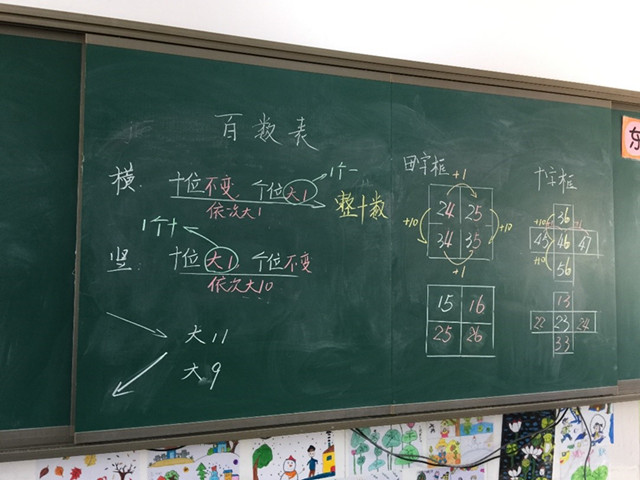 百数表
横: 十位不变 个位大1 1个一
依次大1 整十数
1个十
竖: 十位大1 个位不变
依次大10
大11
大9
田字框
+1
24 25
+10 +10
34 35
+1
15 16
25 26
十字框
36
+10 +1
45 46 47
+10
56
13
22 23 24
33
东